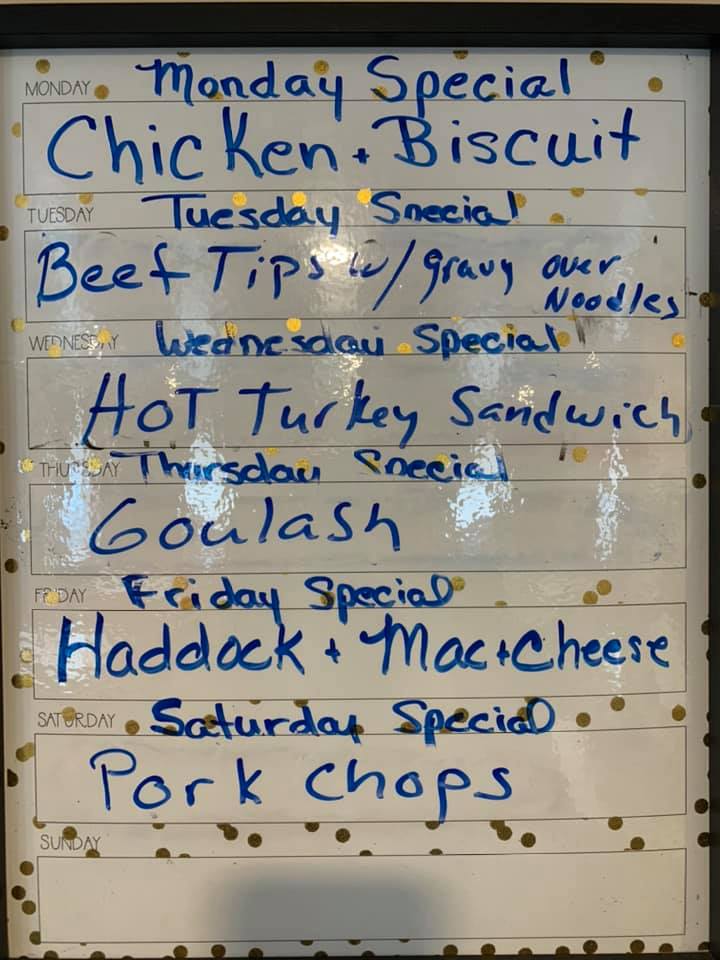 MONDAY Monday Special
Chicken + Biscuit
TUESDAY Tuesday Special
Beef Tips w/ gravy over
Noodles
WEDNESDAY Wednesday Special
HOT Turkey Sandwich
THURSDAY Thursday Special
Goulash
FRIDAY Friday Special
Haddock + Mac + Cheese
SATURDAY Saturday Special
Pork Chops
SUNDAY